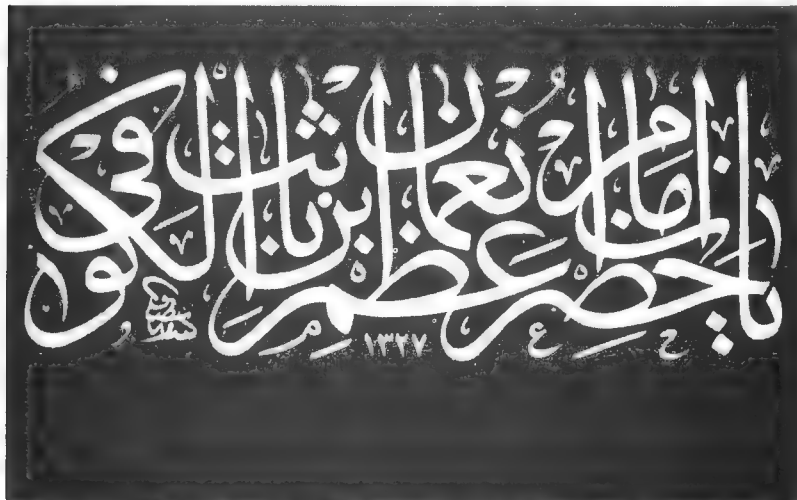 يا حضرت امام اعظم نعمان بن ثابت الكوفى
١٣٢٧